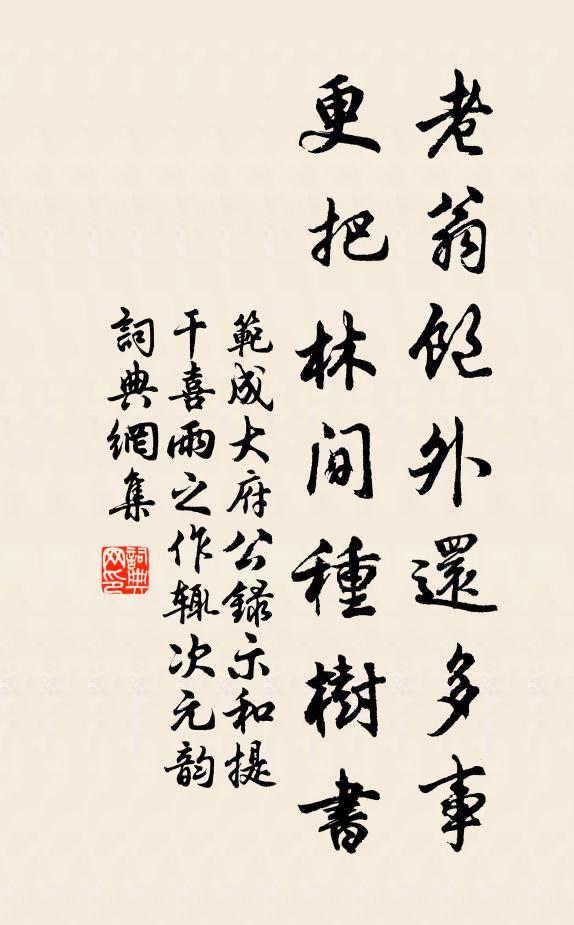 老翁飽外還多事
更把林間種樹書
範成大府公錄示和提
干喜雨之作輒次元韵
詞典網集
詞典
网印